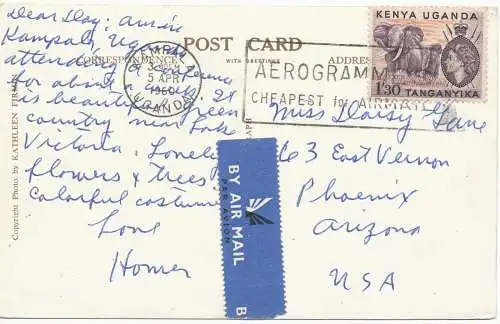 Dear Day: Am in
Kampala, Uganda
attending a conference
for about a week. It
is beautiful green
country near Lake
Victoria. Lovely
flowers & trees
colorful costumes
Love
Homer
POST CARD
CORRESPONDENCE
WITH GREETINGS
ADDRESS
Copyright Photo by KATHLEEN
KAMPALA
5 APR
1960
UGANDA
AEROGRAMM
CHEAPEST for AIRMAIL
KENYA UGANDA
1/30 TANGANYIKA
Miss Daisy Lane
63 East Vernon
Phoenix
Arizona
USA
BY AIR MAIL
PAR AVION